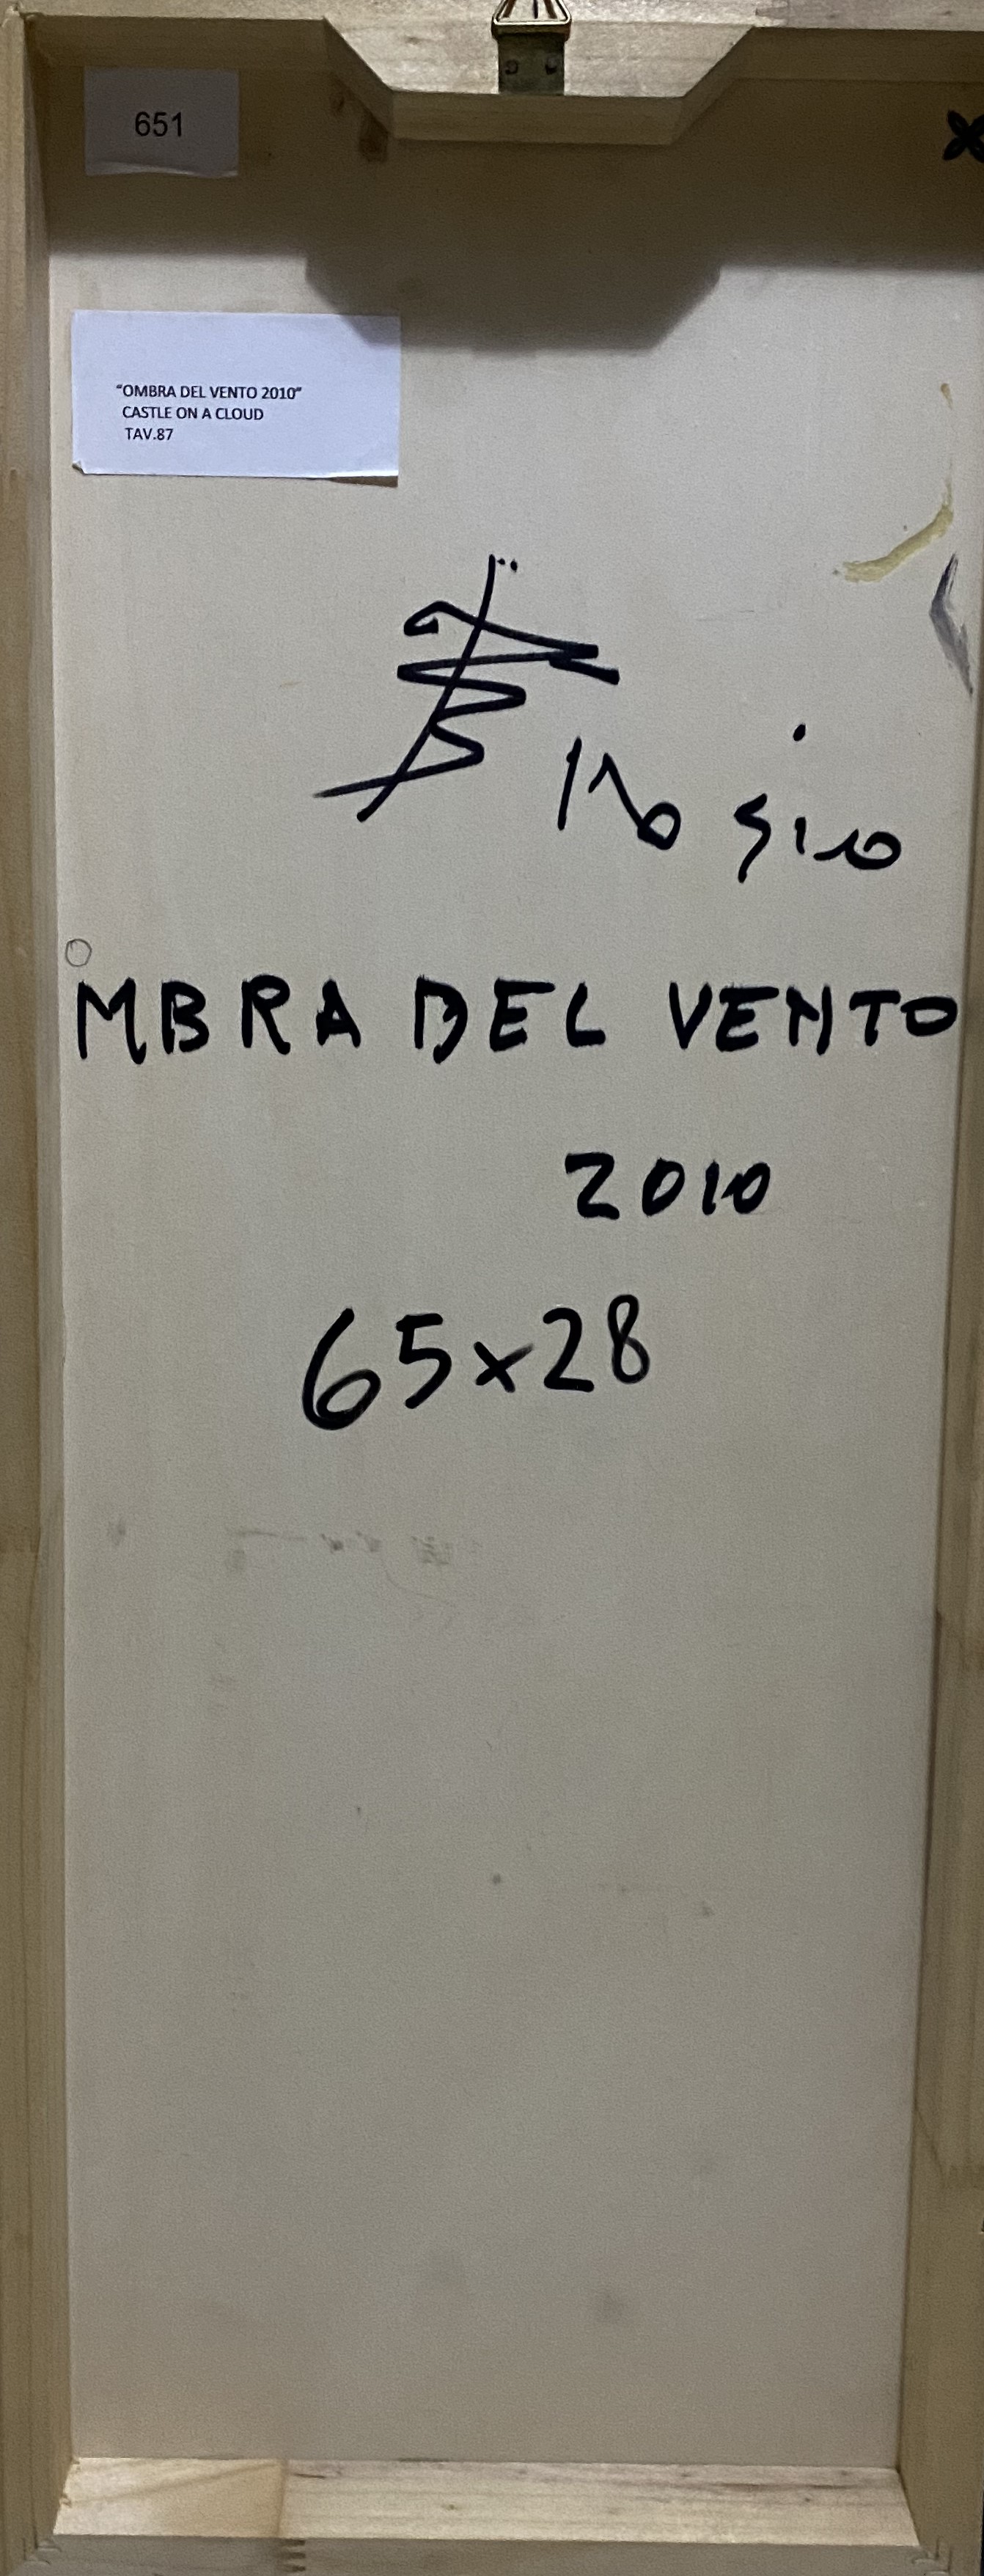 651
"OMBRA DEL VENTO 2010"
CASTLE ON A CLOUD
TAV.87
OMBRA DEL VENTO
2010
65x28